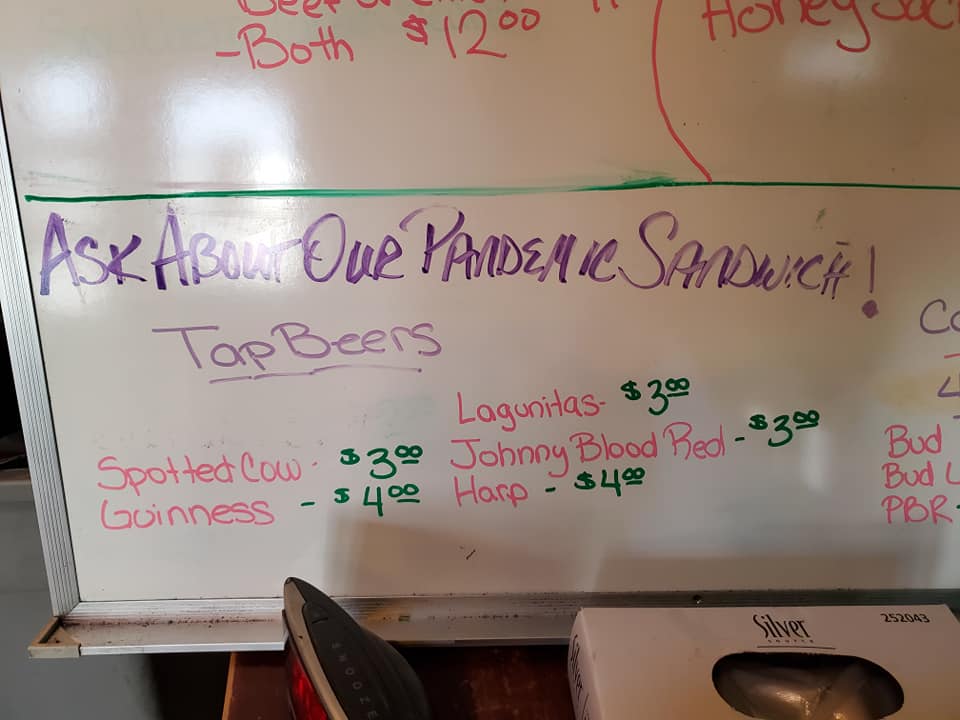 Beef or
-Both $12.00
Honey Jac
ASK ABOUT OUR PANDEMIC SANDWICH!
Tap Beers
Lagunitas- $3.00
Spotted Cow - $3.00 Johnny Blood Red - $3.00
Guinness - $4.00 Harp - $4.00
Co
4
Bud
Bud L
PBR-
Silver
SOURCE
252043
SNOOZE
Silver